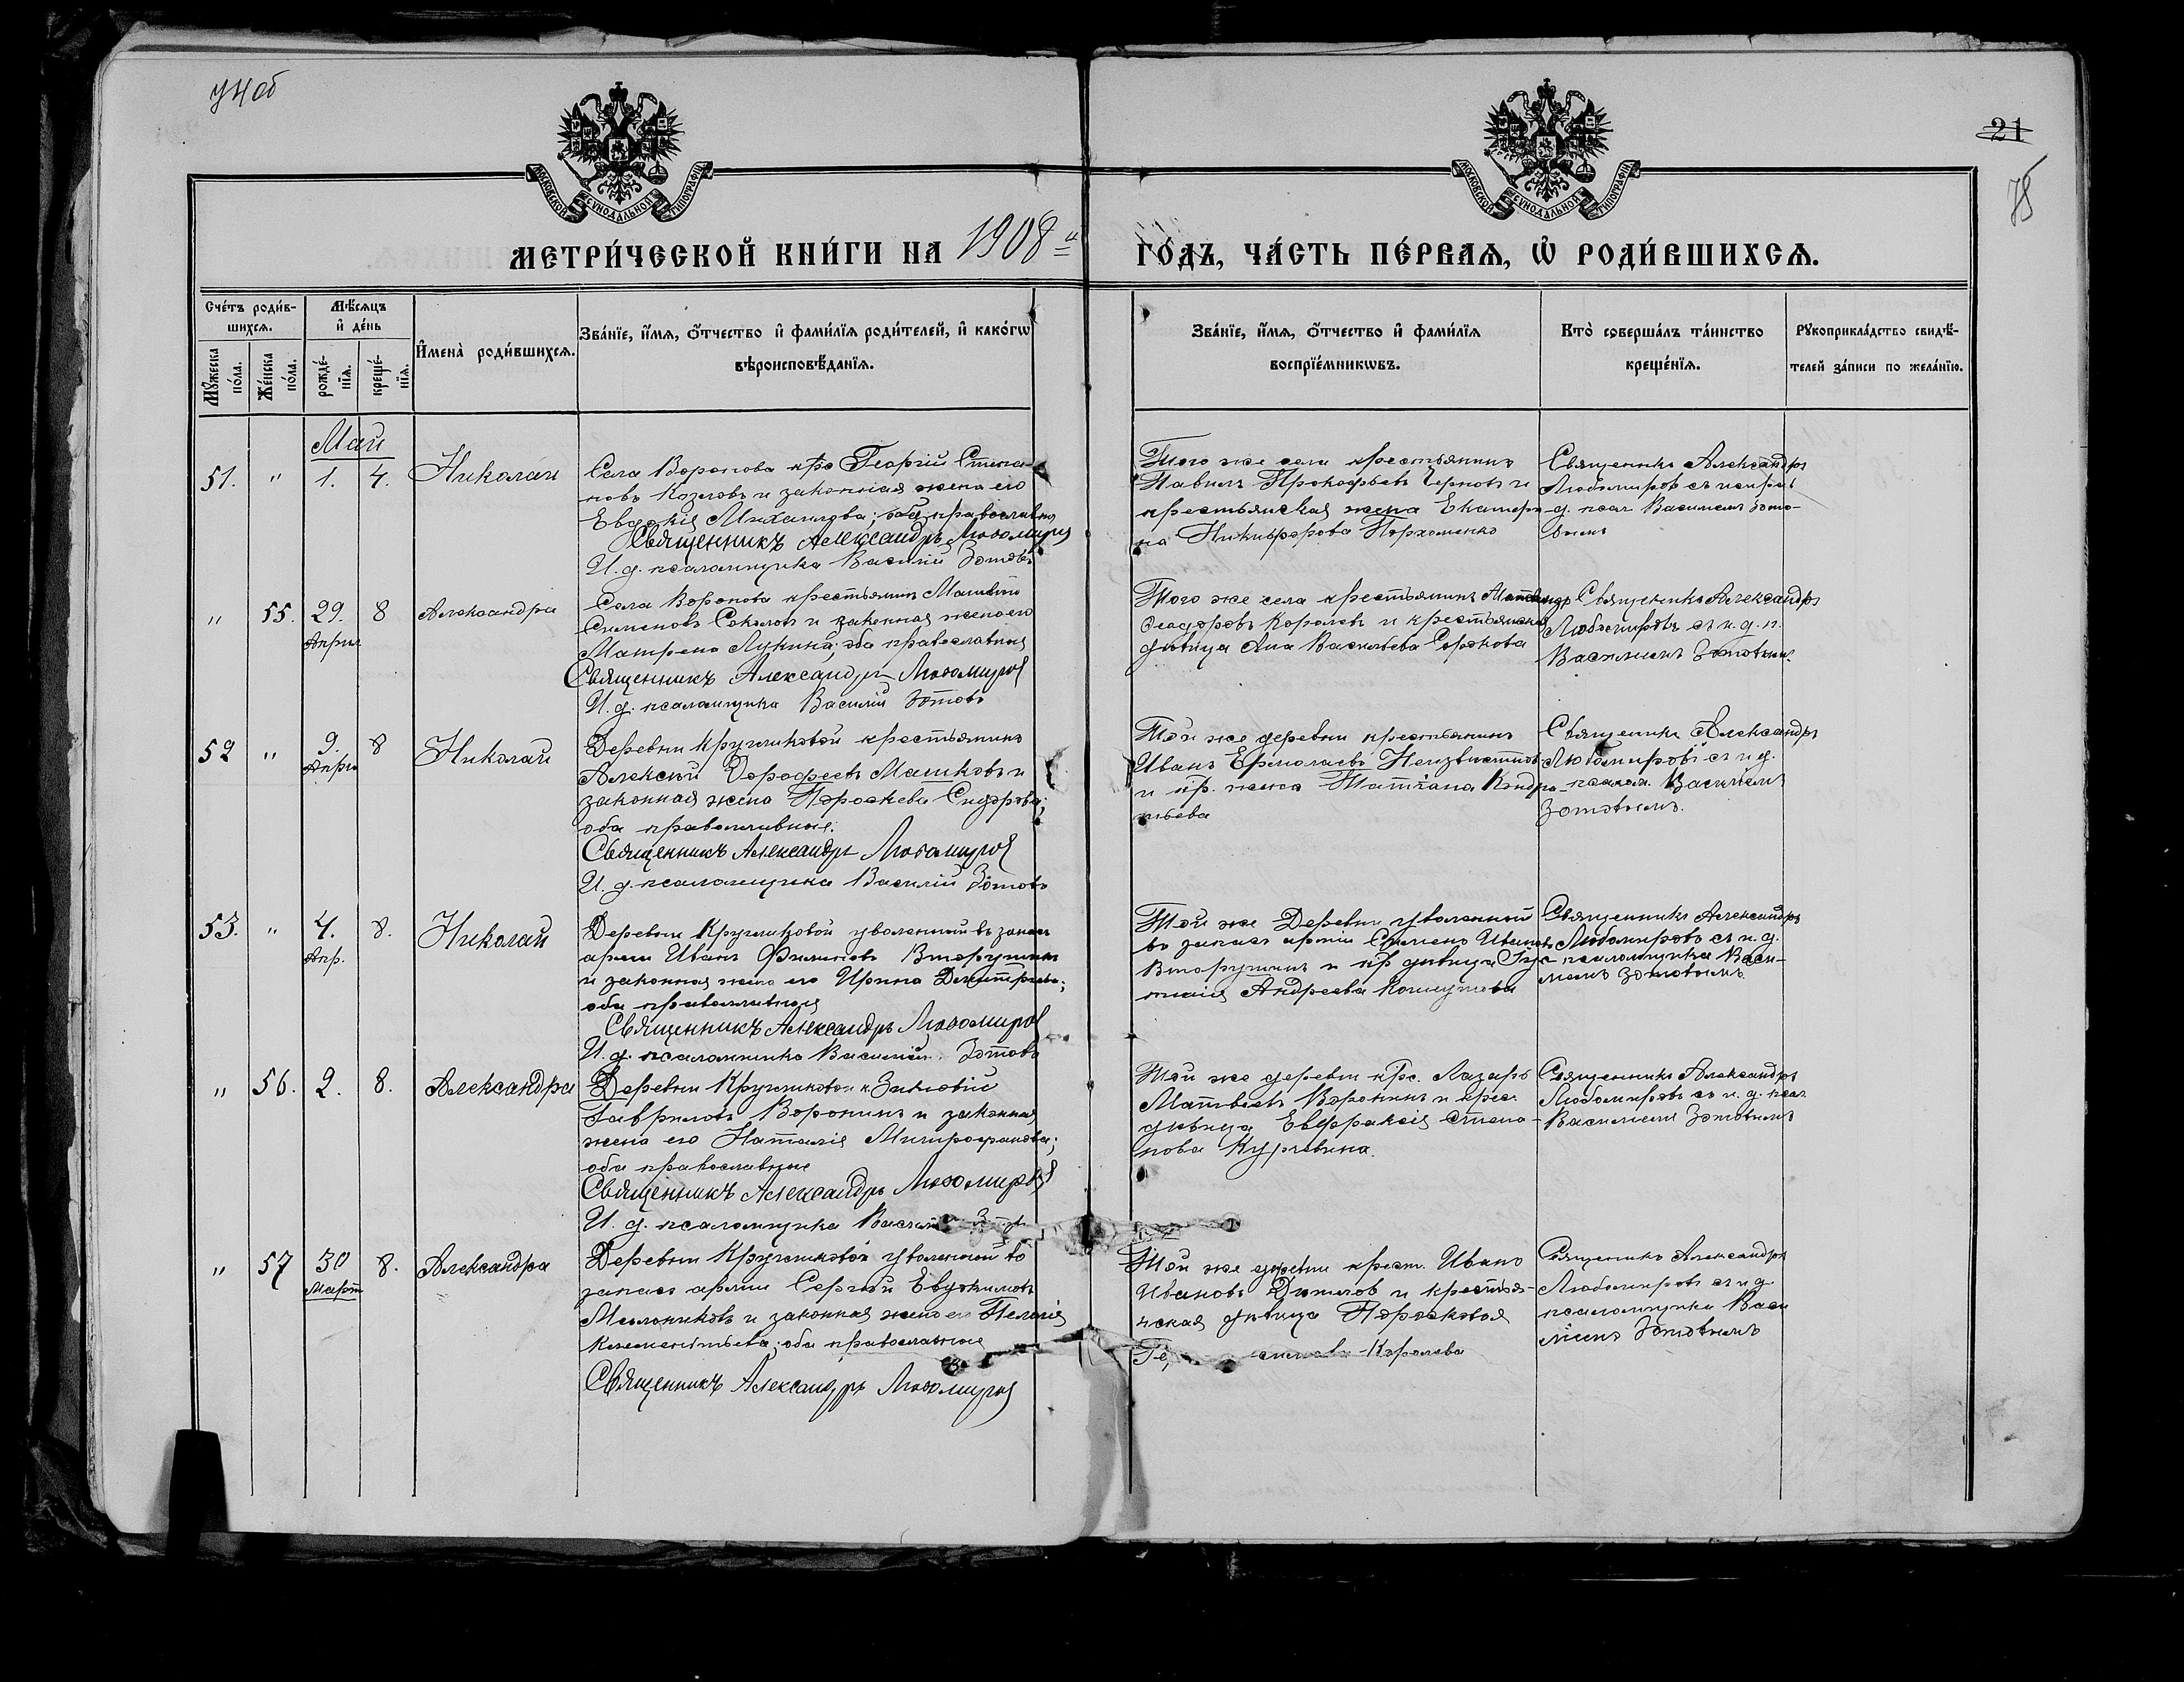 74об
21
75
МОСКОВСКОЙ СѴНОДАЛЬНОЙ ТИПОГРАФІИ
МОСКОВСКОЙ СѴНОДАЛЬНОЙ ТИПОГРАФІИ
МЕТРИ́ЧЕСКОЙ КНИ́ГИ НА 1908й ГО́ДЪ, ЧА́СТЬ ПЕ́РВАѦ, Ѡ҆ РОДИ́ВШИХСѦ.
Сче́тъ роди́вшихсѧ.
Мꙋ́жеска по́ла.
Же́нска по́ла.
Мѣ́сѧцъ и҆ де́нь
рожде́нїѧ.
креще́нїѧ.
И҆мена̀ роди́вшихсѧ.
Зва́нїе, и҆́мѧ, ѻ҆́тчество и҆ фами́лїѧ роди́телей, и҆ како́гѡ
вѣроисповѣ́данїѧ.
Зва́нїе, и҆́мѧ, ѻ҆́тчество и҆ фами́лїѧ
воспрїе́мникѡвъ.
Кто̀ соверша́лъ та́инство
креще́нїѧ.
Рꙋкоприкла́дство свидѣ́телей за́писи по жела́нїю.
Май
51. " 1. 4. Николай
Села Воронова кр. Георгій Степановъ Козловъ и законная жена его
Евдокія Михаилова; оба православные
Священникъ Александръ Любомировъ
И. д. псаломщика Василій Зотовъ
Того же села крестьянинъ
Павелъ Прокофьевъ Черновъ и
крестьянская жена Екатерина Никифорова Пархоменко
Священникъ Александръ
Любомировъ съ испр.
д. псал. Василіемъ Зотовымъ
" 55. 29. Април. 8 Александра
Села Воронова крестьянинъ Матвей
Симеоновъ Соколовъ и законная жена его
Матрена Лукина; оба православные
Священникъ Александръ Любомировъ
И. д. псаломщика Василій Зотовъ
Того же села крестьянинъ
Феодоровъ Королевъ и крестьянская
дѣвица Анна Васильева
Священникъ Александръ
Любомировъ съ и. д. п.
Василіемъ Зотовымъ.
52 " 9. Април 8 Николай
Деревни Кругликовой крестьянинъ
Алексѣй Дорофеевъ Машковъ и
законная жена Параскева Сидорова;
оба православные.
Священникъ Александръ Любомировъ
И. д. псаломщика Василій Зотовъ
Той же деревни крестьянинъ
Иванъ Ермолаевъ Неизвѣстновъ
и кр. жена Татіана Кондратьева
Священникъ Александръ
Любомировъ съ и д.
псалом. Василіемъ
Зотовымъ.
53. " 4. Апр. 8. Николай
Деревни Кругликовой уволенный въ запасъ
арміи Иванъ Филиповъ Вторушинъ
и законная жена его Ирина Димитріева;
оба православные
Священникъ Александръ Любомировъ
И. д. псаломщика Василій Зотовъ
Той же Деревни уволенный
въ запасъ арміи Симеонъ Ивановъ
Вторушинъ и кр дѣвица
Андреева
Священникъ Александръ
Любомировъ съ и. д.
псаломщика Василіемъ Зотовымъ
" 56. 2. 8. Александра
Деревни Кругликовой к. Зиновій
Гавриловъ Воронинъ и законная
жена его Наталія Митрофанова;
оба православные
Священникъ Александръ Любомировъ
И. д. псаломщика Василій
Той же деревни крс. Лазарь
Матвеевъ Воронинъ и крес.
дѣвица Евфраксія Степанова
Священникъ Александръ
Любомировъ съ и. д. псал
Василіемъ Зотовымъ
" 57 30 Март 8. Александра
Деревни Кругликовой уволенный въ
запасъ арміи Сергѣй Евдокимовъ
Мельниковъ и законная жена его Пелагія
Климентьева; оба православные
Священникъ Александръ Любомировъ
Той же деревни крест. Иванъ
Ивановъ и крестьянская дѣвица Параскева
Королева
Священникъ Александръ
Любомировъ съ и д
псаломщика Василіемъ Зотовымъ